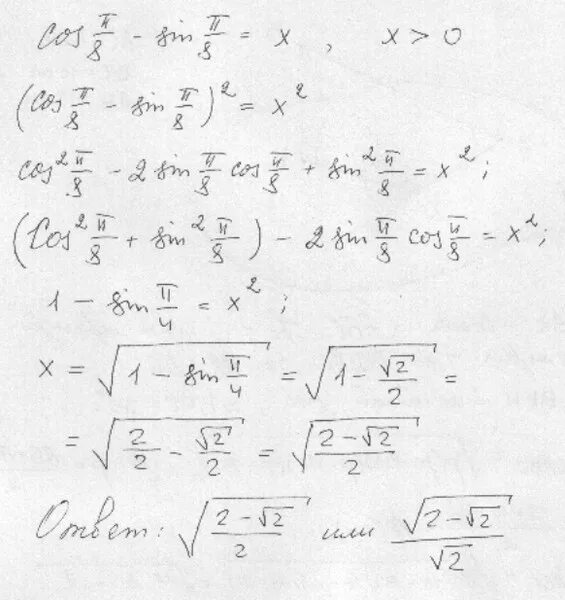 cos π/8 - sin π/8 = x , x > 0
(cos π/8 - sin π/8)² = x²
cos² π/8 - 2 sin π/8 cos π/8 + sin² π/8 = x²;
(cos² π/8 + sin² π/8) - 2 sin π/8 cos π/8 = x²;
1 - sin π/4 = x²;
x = √(1 - sin π/4) = √(1 - √2/2) =
= √(2/2 - √2/2) = √((2-√2)/2)
Ответ: √((2-√2)/2) или √(2-√2)/√2